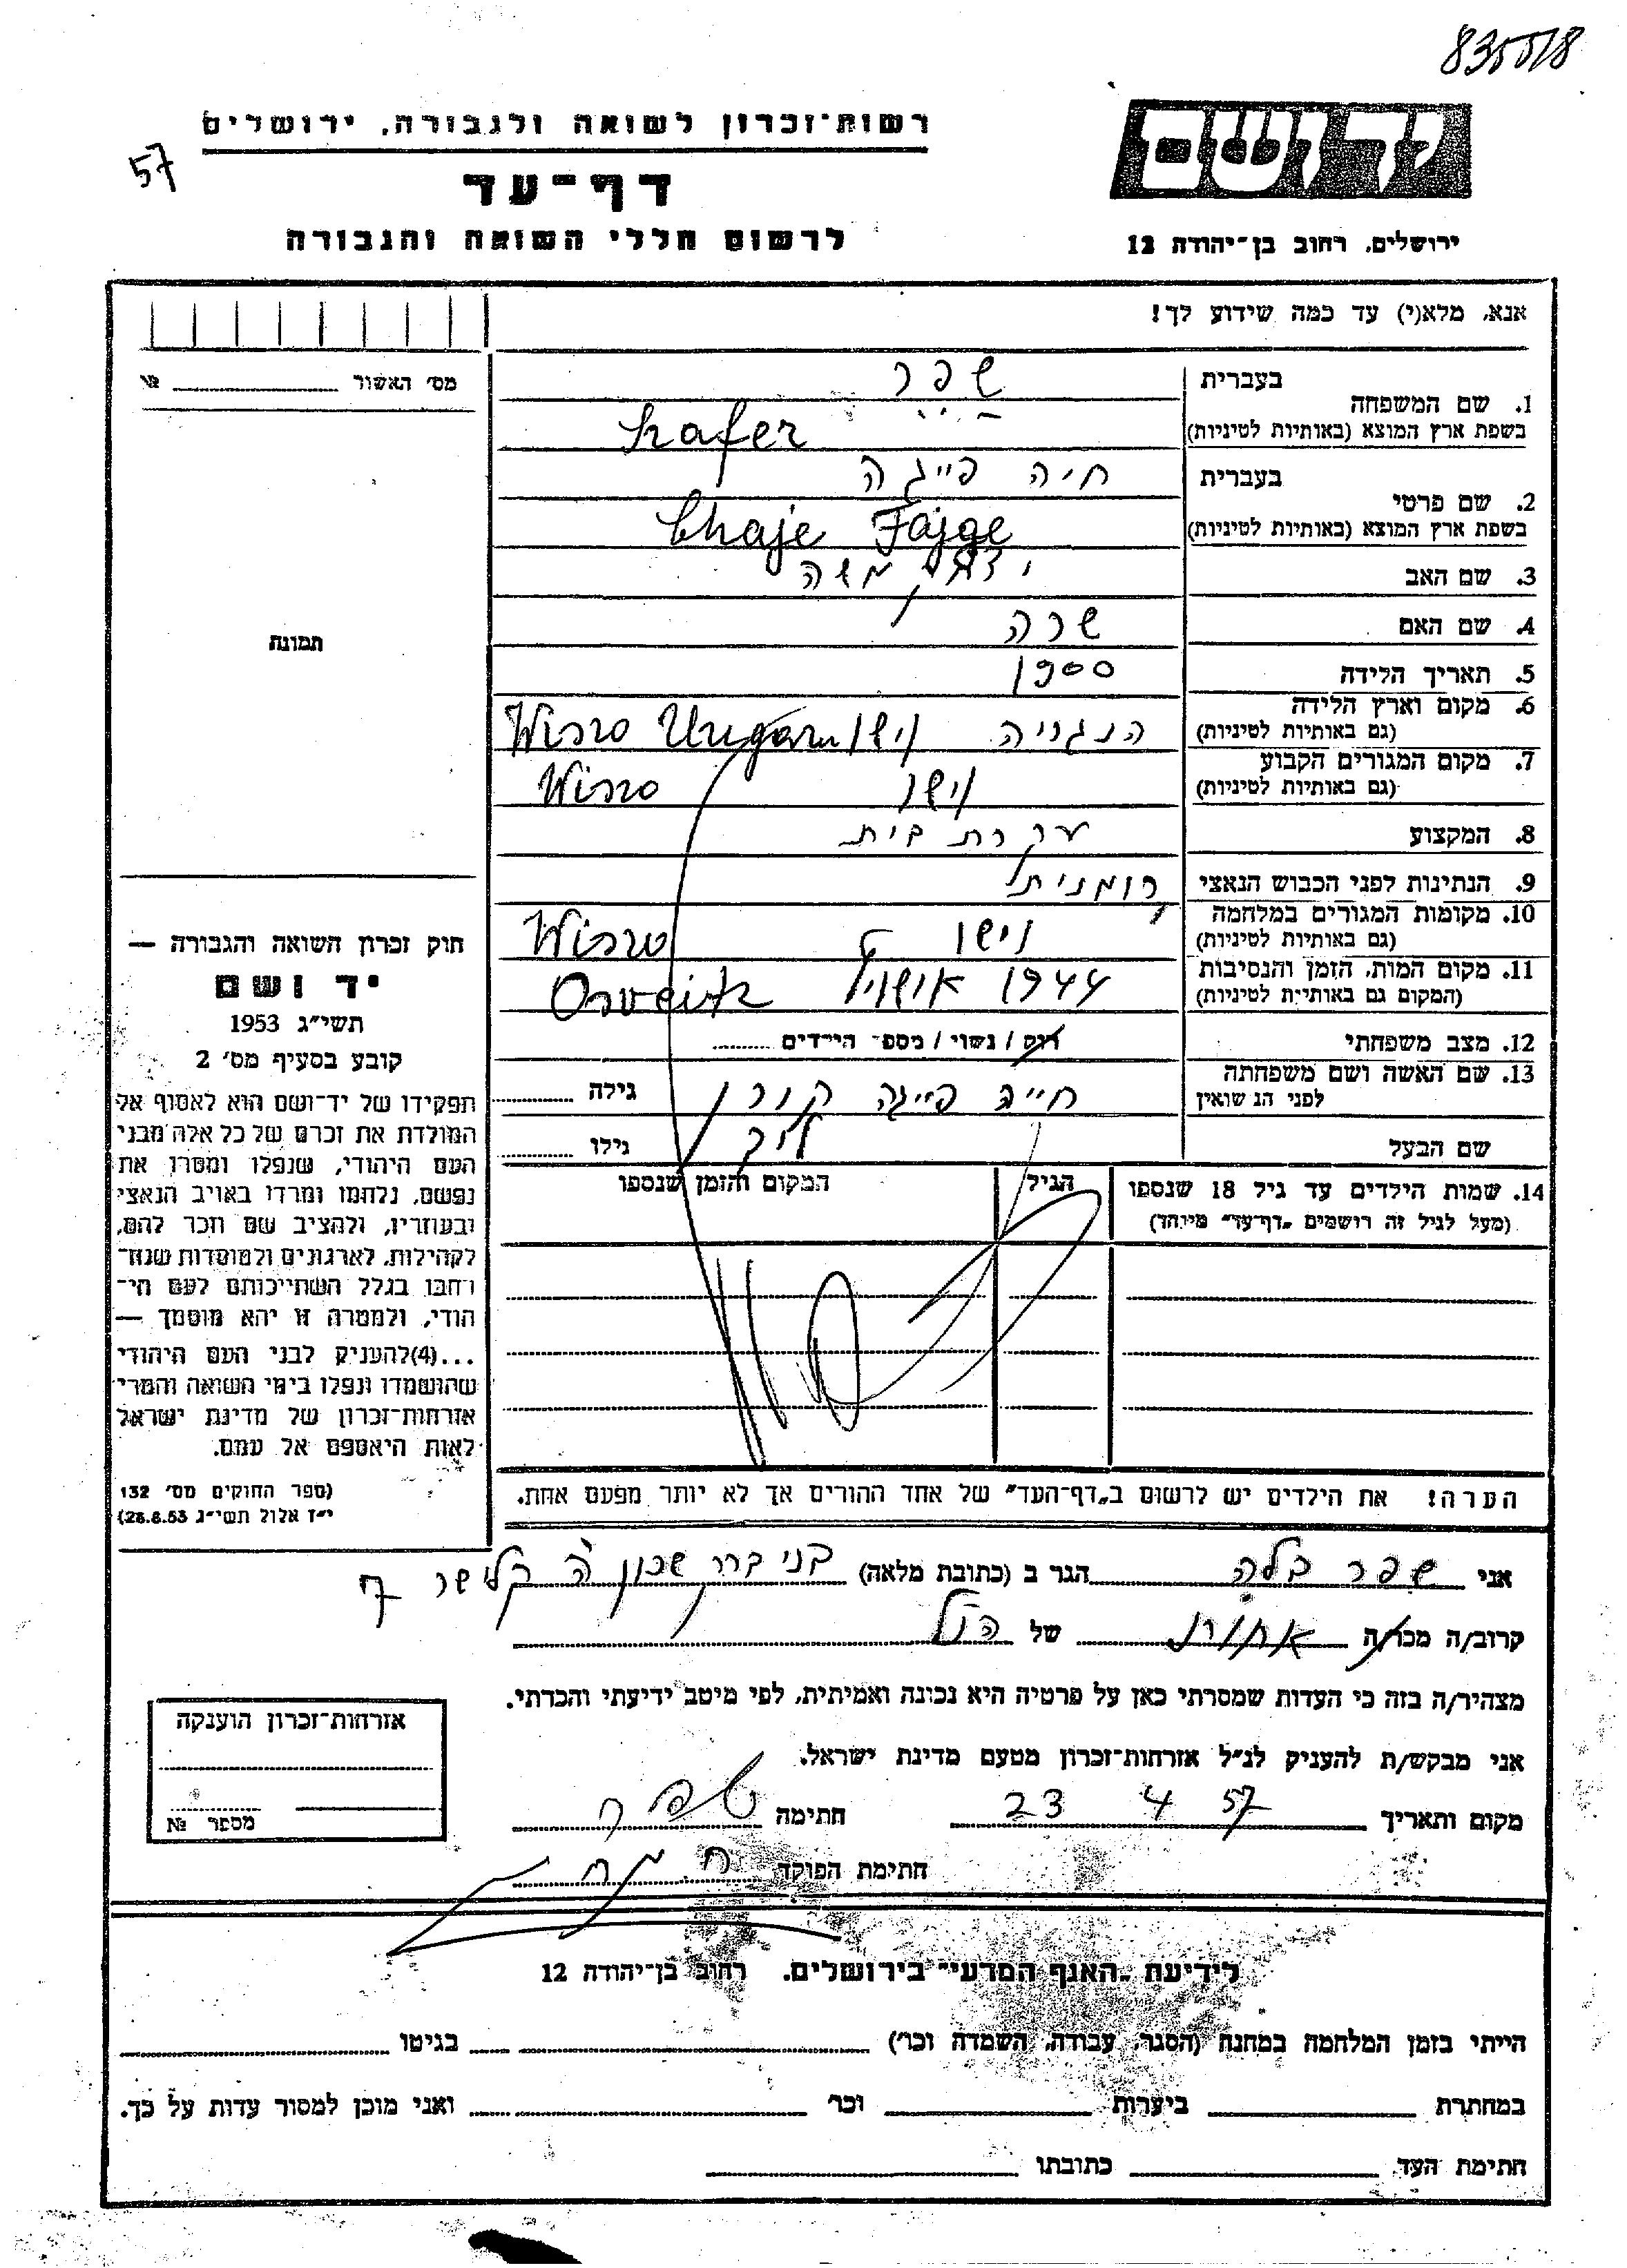 835518
רשות־זכרון לשואה ולגבורה, ירושלים
57
דף־עד
לרשום חללי השואה והגבורה
יד ושם
ירושלים, רחוב בן־יהודה 12
אנא, מלא(י) עד כמה שידוע לך!
מס׳ האשור № 
תמונה
1. שם המשפחה בעברית שפר
בשפת ארץ המוצא (באותיות לטיניות) Shafer
2. שם פרטי בעברית חיה פייגה
בשפת ארץ המוצא (באותיות לטיניות) Chaje Fajge
3. שם האב יצחק משה
4. שם האם שרה
5. תאריך הלידה 1900
6. מקום וארץ הלידה הונגריה וישו Wisso Ungarn
(גם באותיות לטיניות)
7. מקום המגורים הקבוע וישו Wisso
(גם באותיות לטיניות)
8. המקצוע עקרת בית
9. הנתינות לפני הכבוש הנאצי רומנית
10. מקומות המגורים במלחמה וישו Wisso
(גם באותיות לטיניות)
11. מקום המות, הזמן והנסיבות 1944
(המקום גם באותיות לטיניות)
12. מצב משפחתי רווק / נשוי / מספר הילדים
13. שם האשה ושם משפחתה חייה פייגה גילה
לפני הנשואין
שם הבעל גילו
14. שמות הילדים עד גיל 18 שנספו הגיל המקום והזמן שנספו
(מעל לגיל זה רושמים „דף־עד״ מיוחד)
הערה! את הילדים יש לרשום ב„דף־העד״ של אחד ההורים אך לא יותר מפעם אחת.
חוק זכרון השואה והגבורה —
יד ושם
תשי״ג 1953
קובע בסעיף מס׳ 2
תפקידו של יד־ושם הוא לאסוף אל
המולדת את זכרם של כל אלה מבני
העם היהודי, שנפלו ומסרו את
נפשם, נלחמו ומרדו באויב הנאצי
ובעוזריו, ולהציב שם וזכר להם,
לקהילות, לארגונים ולמוסדות שנח־
רבו בגלל השתייכותם לעם הי־
הודי, ולמטרה זו יהא מוסמך —
...(4)להעניק לבני העם היהודי
שהושמדו ונפלו בימי השואה והמרי
אזרחות־זכרון של מדינת ישראל
לאות היאספם אל עמם.
(ספר החוקים מס׳ 132
י״ז אלול תשי״ג 28.8.53)
אני שפר בלה הגר ב (כתובת מלאה) בני ברק שכון ה
קרוב/ה מכר/ה אחות של הנ״ל
מצהיר/ה בזה כי העדות שמסרתי כאן על פרטיה היא נכונה ואמיתית, לפי מיטב ידיעתי והכרתי.
אני מבקש/ת להעניק לנ״ל אזרחות־זכרון מטעם מדינת ישראל.
מקום ותאריך 23 4 57 חתימה שפר
חתימת הפוקד
אזרחות־זכרון הוענקה
מספר №
לידיעת „האגף המדעי״ בירושלים. רחוב בן־יהודה 12
הייתי בזמן המלחמה במחנה (הסגר, עבודה, השמדה וכר׳) בגיטו
במחתרת ביערות וכר׳ ואני מוכן למסור עדות על כך.
חתימת העד כתובתו